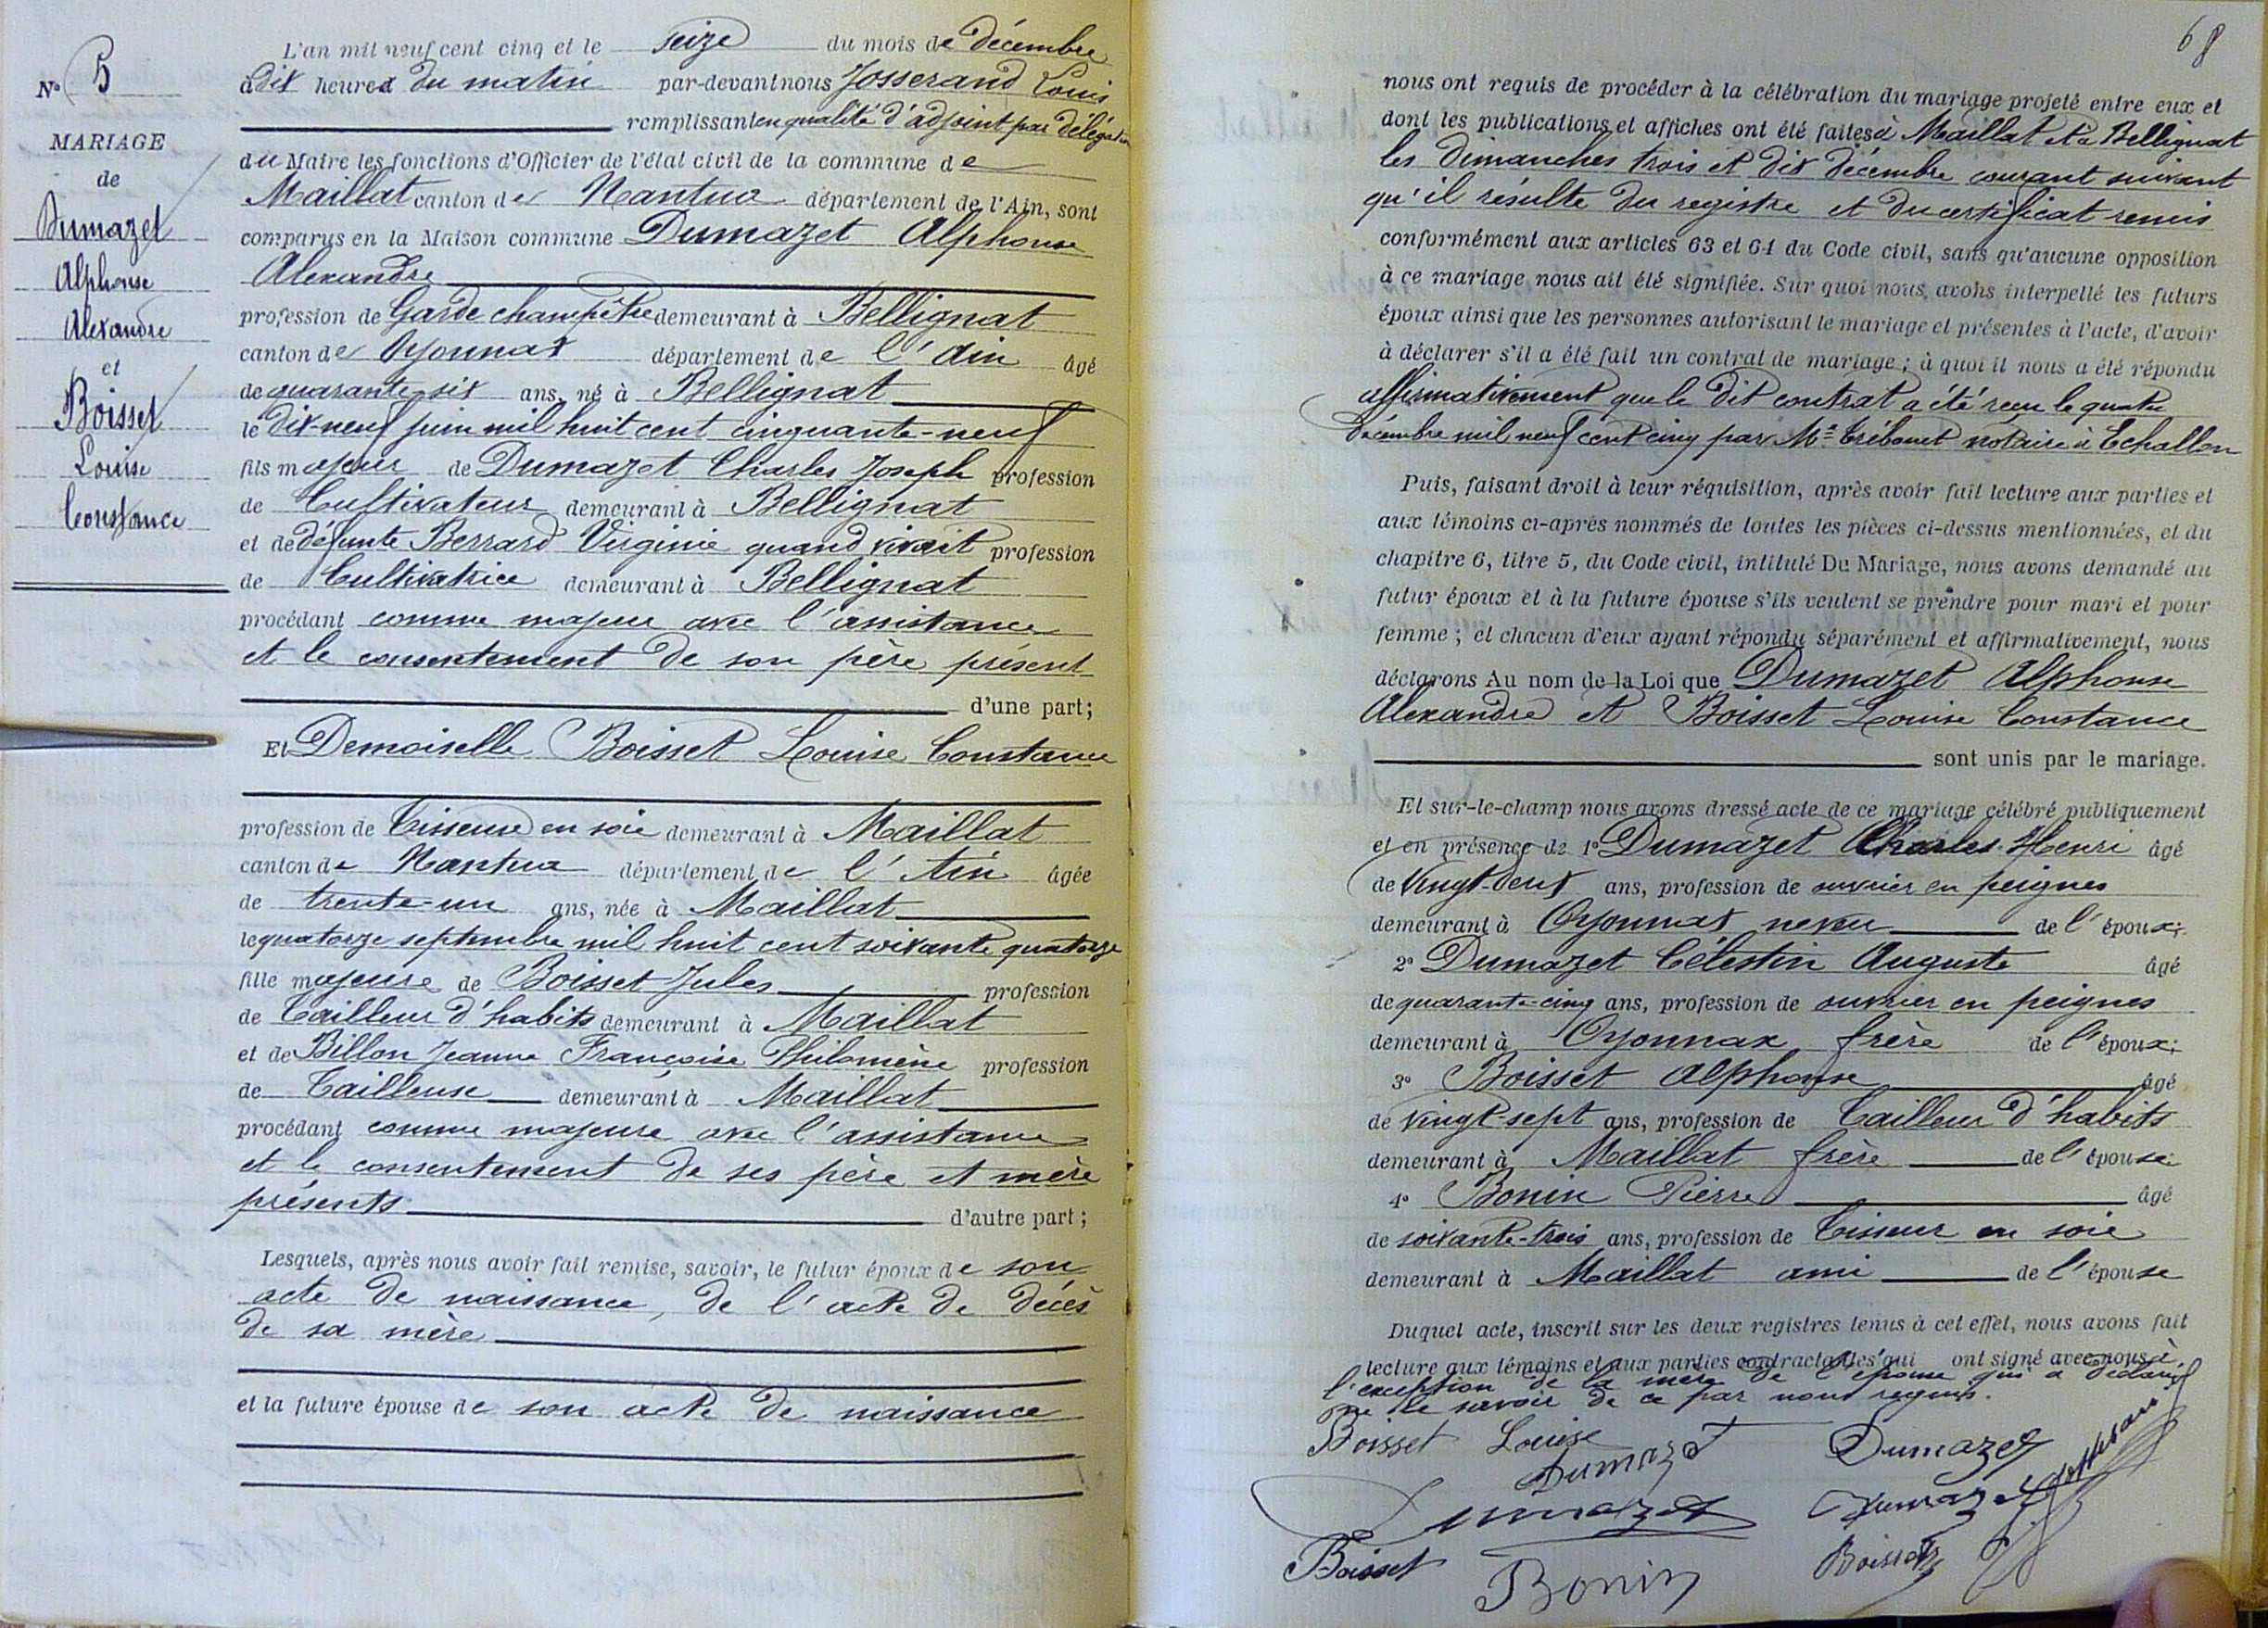 N° 5
MARIAGE
de
Dumazet
Alphonse
Alexandre
et
Boisset
Louise
Constance
L'an mil neuf cent cinq et le seize du mois de décembre
à dix heures du matin par-devant nous Josserand Louis
remplissant en qualité d'adjoint par délégation
du Maire les fonctions d'Officier de l'état civil de la commune de
Maillat canton de Nantua département de l'Ain, sont
comparus en la Maison commune Dumazet Alphonse
Alexandre
profession de Garde champêtre demeurant à Bellignat
canton de Oyonnax département de l'Ain âgé
de quarante-six ans, né à Bellignat
le dix-neuf juin mil huit cent cinquante-neuf
fils majeur de Dumazet Charles Joseph profession
de Cultivateur demeurant à Bellignat
et de défunte Berrard Virginie quand vivait profession
de Cultivatrice demeurant à Bellignat
procédant comme majeur avec l'assistance
et le consentement de son père présent
d'une part;
Et Demoiselle Boisset Louise Constance
profession de Tisseuse en soie demeurant à Maillat
canton de Nantua département de l'Ain âgée
de trente-un ans, née à Maillat
le quatorze septembre mil huit cent soixante quatorze
fille majeure de Boisset Jules profession
de Tailleur d'habits demeurant à Maillat
et de Billon Jeanne Françoise Philomène profession
de Tailleuse demeurant à Maillat
procédant comme majeure avec l'assistance
et le consentement de ses père et mère
présents d'autre part;
Lesquels, après nous avoir fait remise, savoir, le futur époux de son
acte de naissance, de l'acte de décès
de sa mère
et la future épouse de son acte de naissance
68
nous ont requis de procéder à la célébration du mariage projeté entre eux et
dont les publications et affiches ont été faites à Maillat et à Bellignat
les dimanches trois et dix décembre courant suivant
qu'il résulte du registre et du certificat remis
conformément aux articles 63 et 64 du Code civil, sans qu'aucune opposition
à ce mariage nous ait été signifiée. Sur quoi nous avons interpellé les futurs
époux ainsi que les personnes autorisant le mariage et présentes à l'acte, d'avoir
à déclarer s'il a été fait un contrat de mariage; à quoi il nous a été répondu
affirmativement que le dit contrat a été reçu le quatre
décembre mil neuf cent cinq par Me Crébouet notaire à Echallon
Puis, faisant droit à leur réquisition, après avoir fait lecture aux parties et
aux témoins ci-après nommés de toutes les pièces ci-dessus mentionnées, et du
chapitre 6, titre 5, du Code civil, intitulé Du Mariage, nous avons demandé au
futur époux et à la future épouse s'ils veulent se prendre pour mari et pour
femme; et chacun d'eux ayant répondu séparément et affirmativement, nous
déclarons Au nom de la Loi que Dumazet Alphonse
Alexandre et Boisset Louise Constance
sont unis par le mariage.
Et sur-le-champ nous avons dressé acte de ce mariage célébré publiquement
et en présence de 1° Dumazet Charles Henri âgé
de vingt-deux ans, profession de ouvrier en peignes
demeurant à Oyonnax neveu de l'époux;
2° Dumazet Célestin Auguste âgé
de quarante-cinq ans, profession de ouvrier en peignes
demeurant à Oyonnax frère de l'époux;
3° Boisset Alphonse âgé
de vingt-sept ans, profession de Tailleur d'habits
demeurant à Maillat frère de l'épouse;
4° Bonin Pierre âgé
de soixante-trois ans, profession de Tisseur en soie
demeurant à Maillat ami de l'épouse
Duquel acte, inscrit sur les deux registres tenus à cet effet, nous avons fait
lecture aux témoins et aux parties contractantes qui ont signé avec nous à
l'exception de la mère de l'épouse qui a déclaré
ne le savoir de ce par nous requis.
Boisset Louise
Dumazet Dumazet Josserand
Dumazet Dumazet
Boisset Bonin Boisset